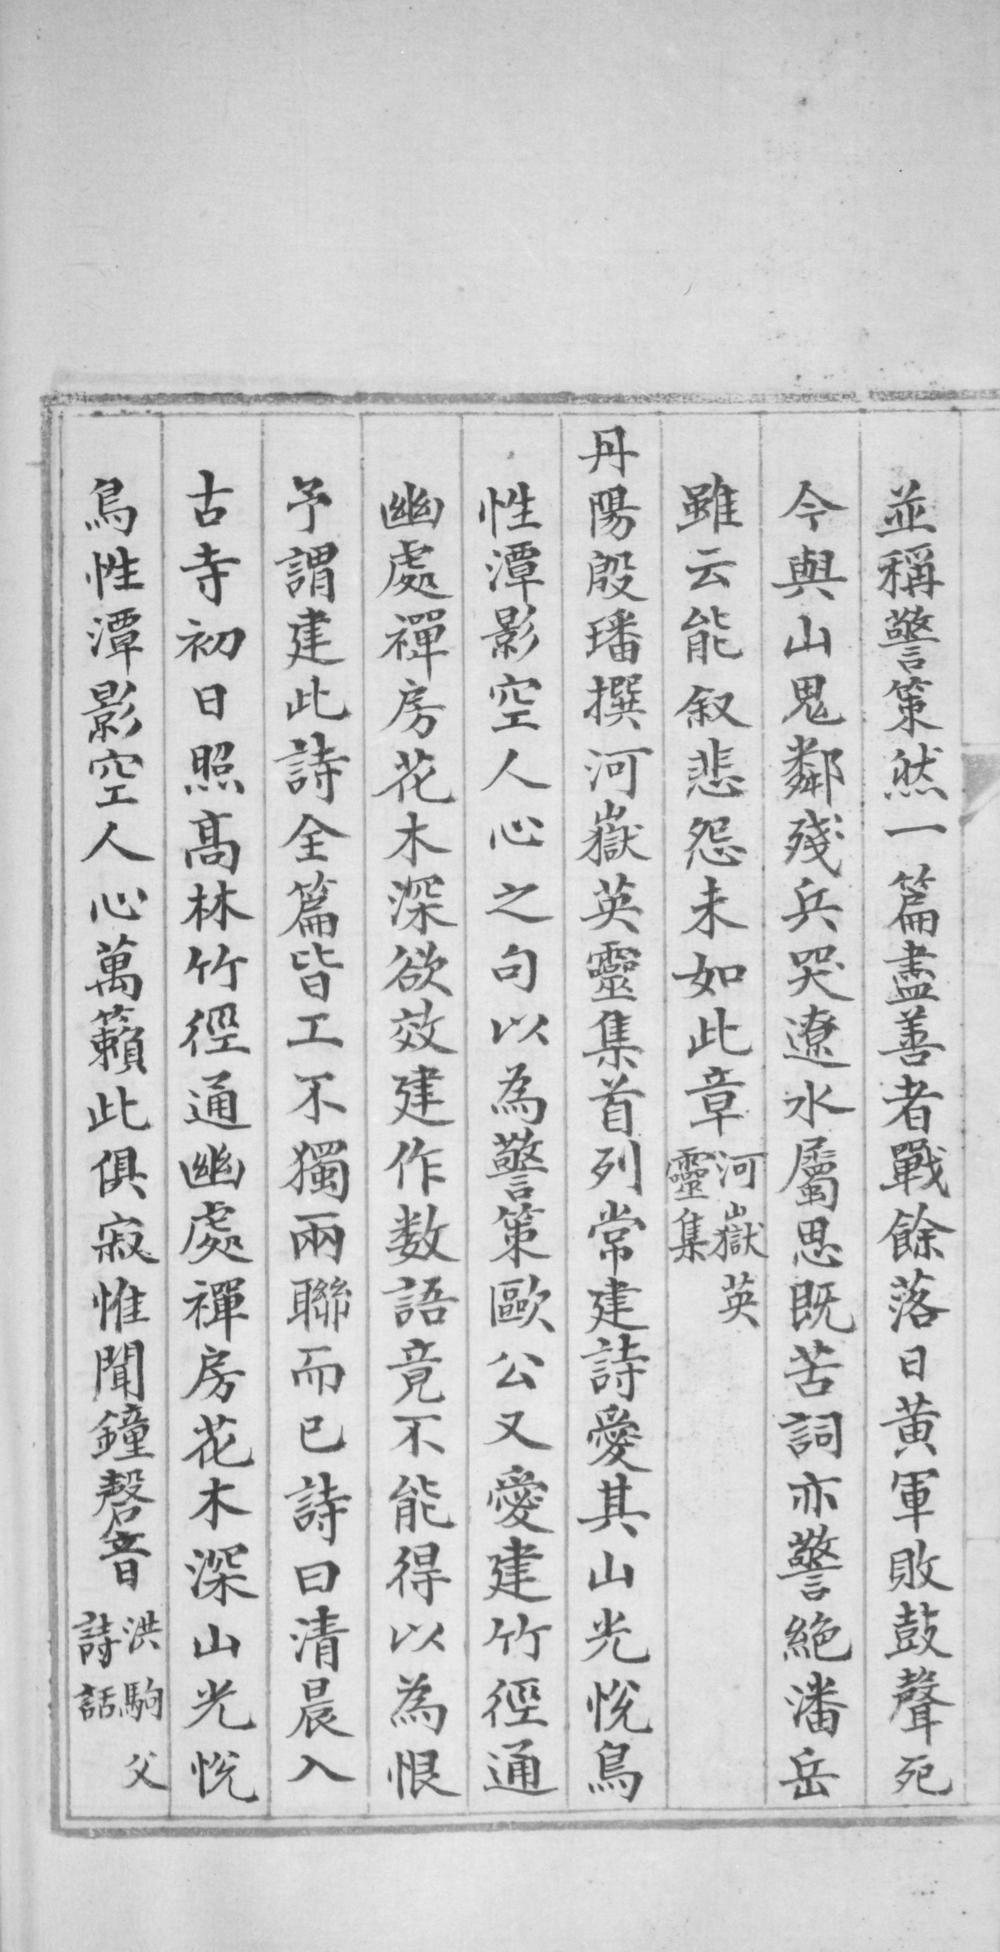 並稱警策然一篇盡善者戰餘落日黃軍敗鼓聲死
今與山鬼鄰殘兵哭遼水屬思既苦詞亦警絕潘岳
雖云能叙悲怨未如此章河嶽英靈集
丹陽殷璠撰河嶽英靈集首列常建詩愛其山光悅鳥
性潭影空人心之句以為警策歐公又愛建竹徑通
幽處禪房花木深欲效建作数語竟不能得以為恨
予謂建此詩全篇皆工不獨兩聯而已詩曰清晨入
古寺初日照髙林竹徑通幽處禪房花木深山光悅
鳥性潭影空人心萬籟此俱寂惟聞鐘磬音洪駒父詩話